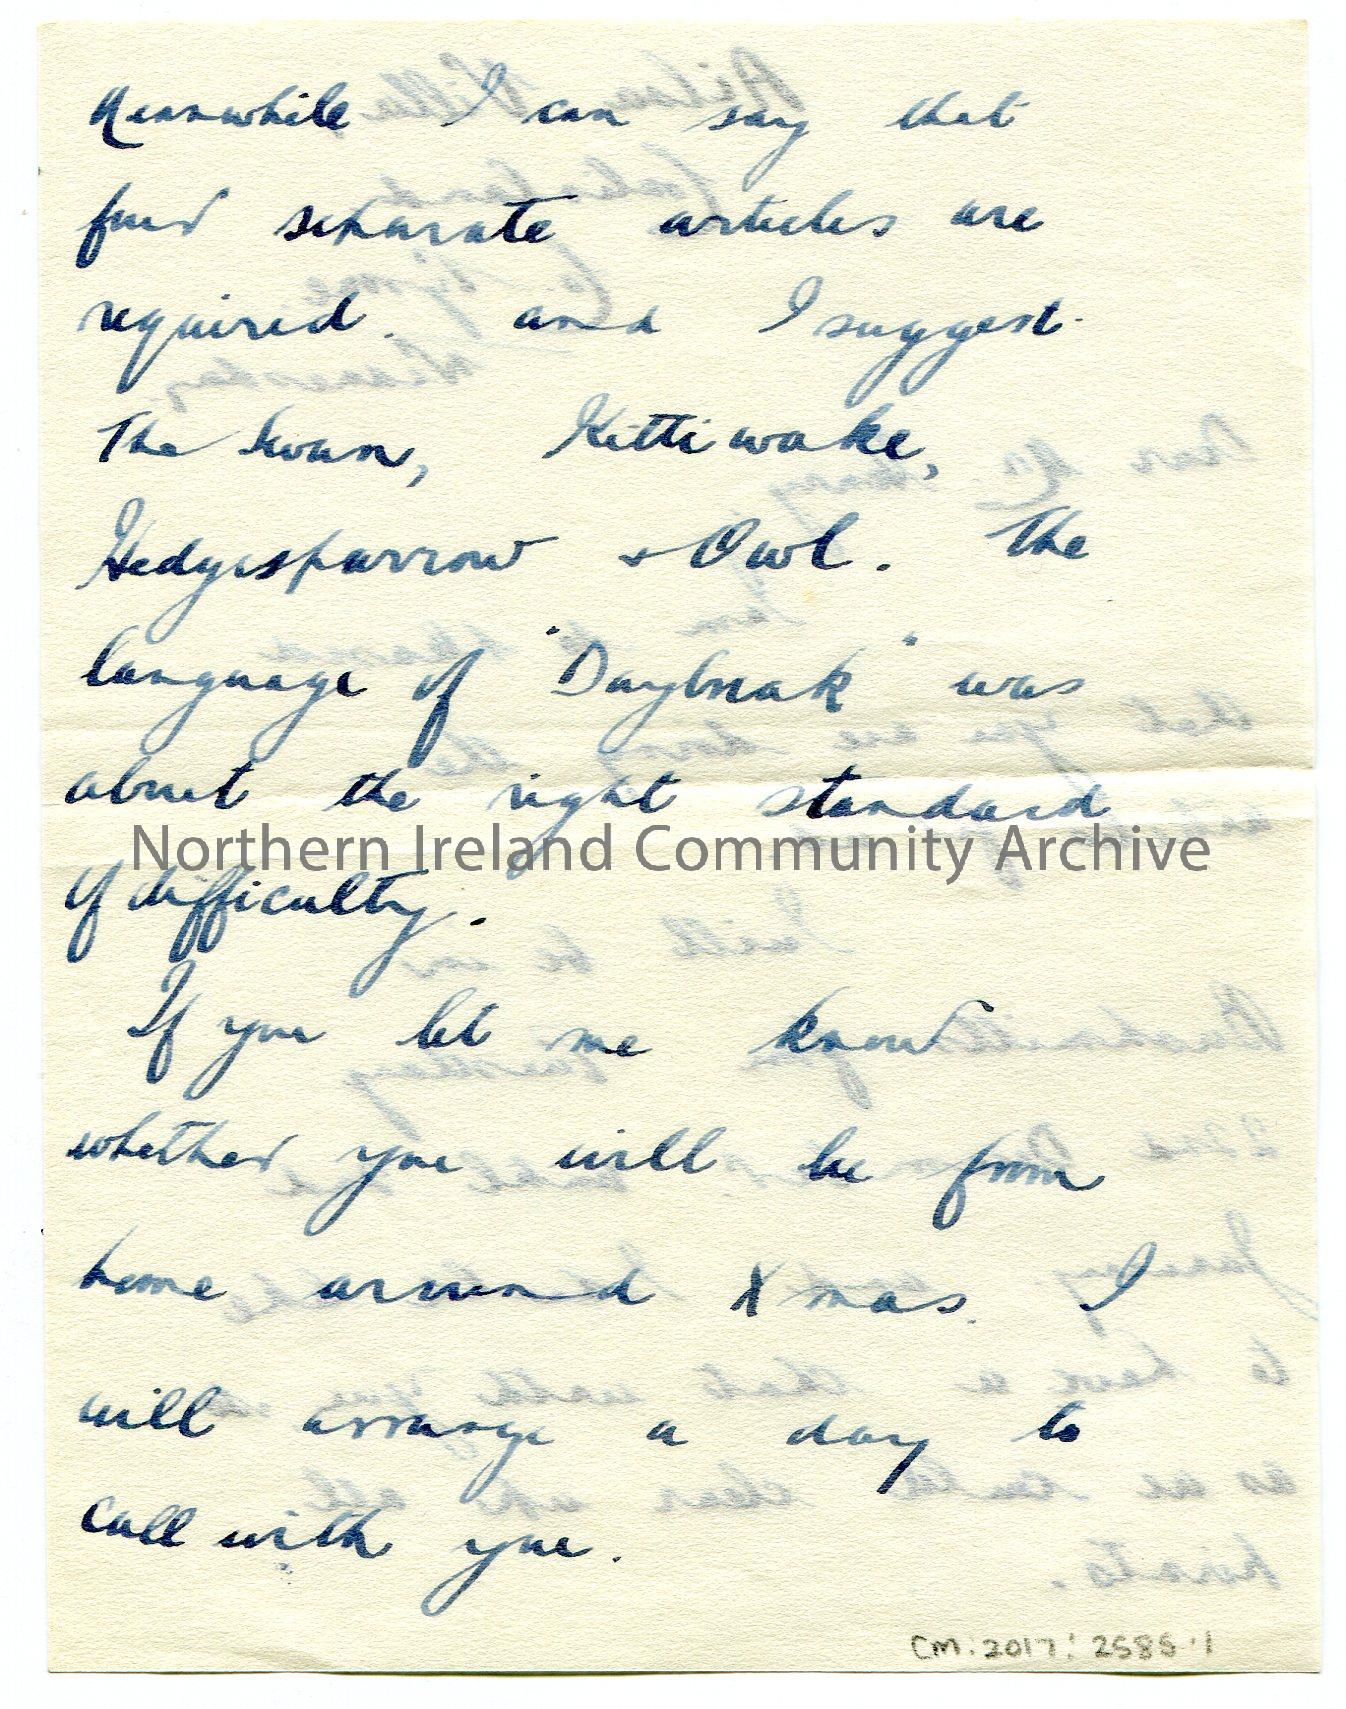 Meanwhile I can say that
four separate articles are
required. and I suggest.
The Swan, Kittiwake,
Hedgesparrow + Owl. The
language of "Daybreak" was
about the right standard
Northern Ireland Community Archive
of difficulty.
If you let me know
whether you will be from
home around Xmas. I
will arrange a day to
call with you.
CM:2017:2585.1